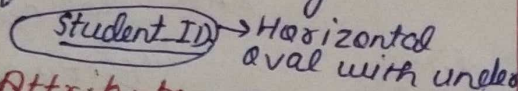 Student_ID → Horizontal
Oval with under
Attrib